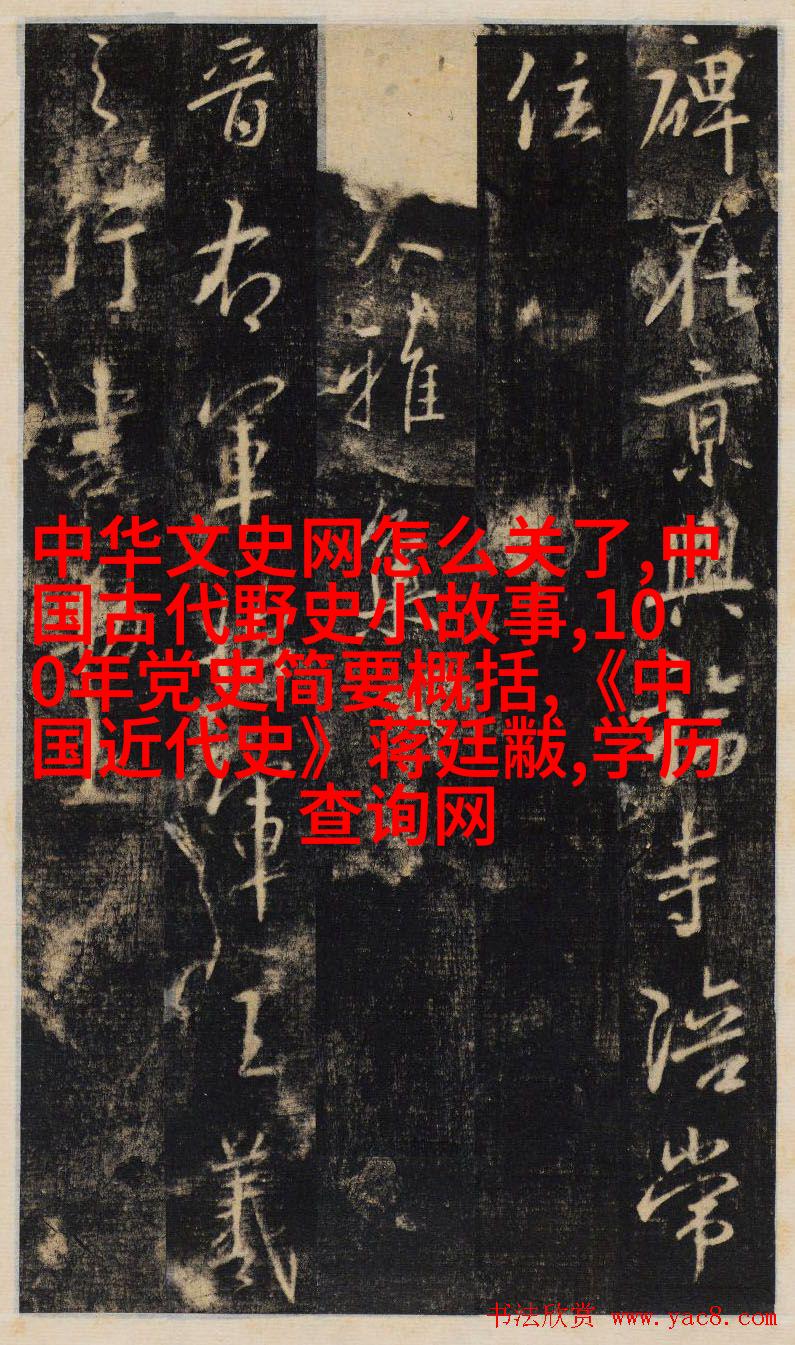 碑在京興福寺陪常
住
大雅集
晋右軍将軍王羲
之行書
中华文史网怎么关了,中
国古代野史小故事,10
0年党史简要概括,《中
国近代史》蒋廷黻,学历
查询网
书法欣赏 www.yac8.com